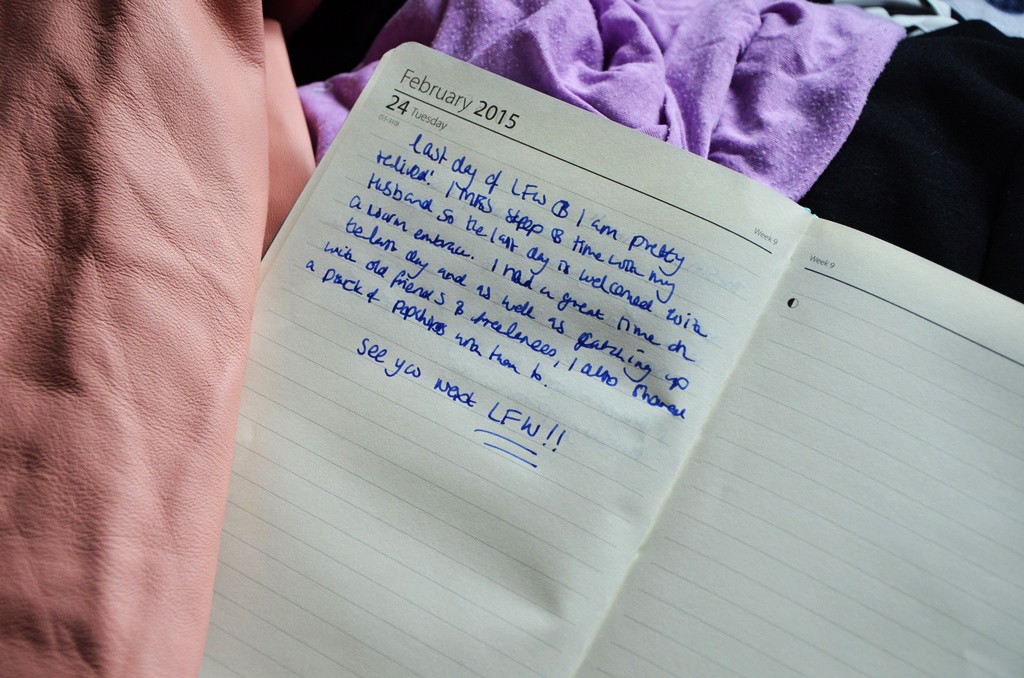 February 2015
24 Tuesday
last day of LFW & I am pretty
relived! I miss sleep & time with my
Husband so the last day is welcomed with
a warm embrace. I had a great time on
the last day and as well as catching up
with old friends & freelances, I also shared
a pack of Popchips with them to.
See you next LFW!!
Week 9
Week 9